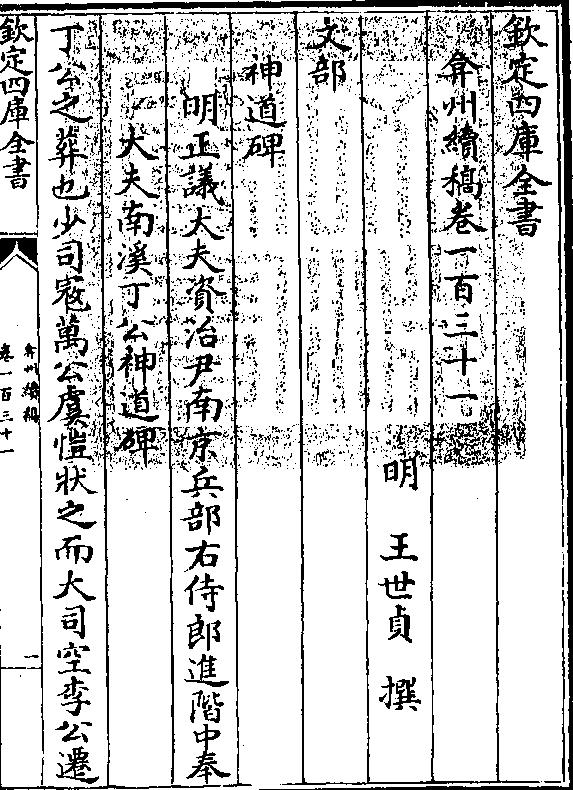 欽定四庫全書
弇州續稿卷一百三十一
明 王世貞 撰
文部
神道碑
明正議大夫資治尹南京兵部右侍郎進階中奉
大夫南溪丁公神道碑
丁公之葬也少司寇萬公虞愷狀之而大司空李公遷
欽定四庫全書
弇州續稿
卷一百三十一
一